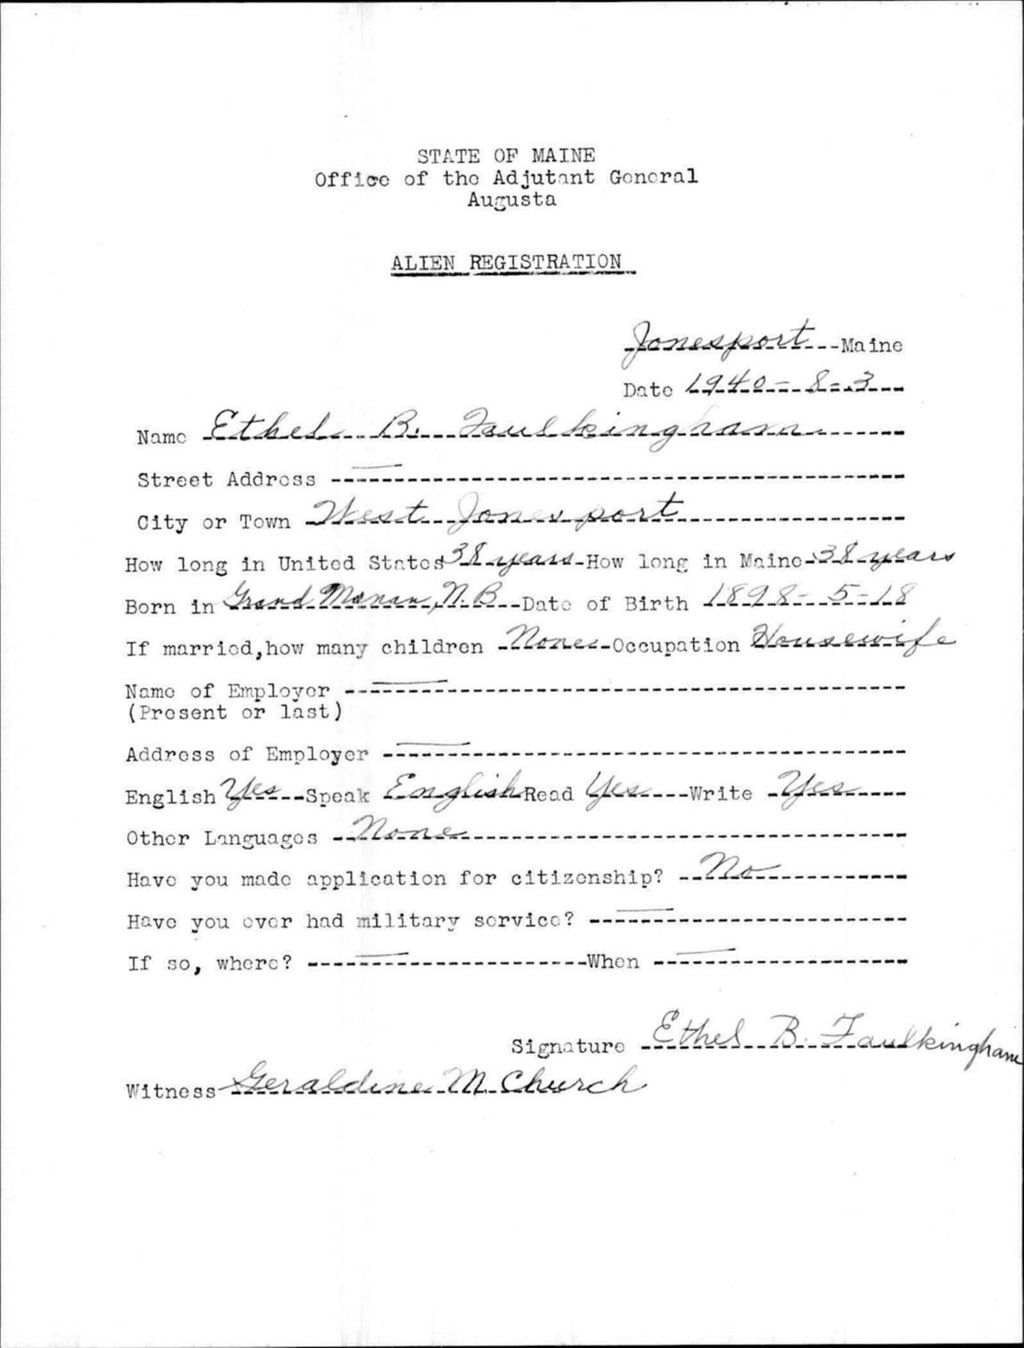 STATE OF MAINE
Office of the Adjutant General
Augusta
ALIEN REGISTRATION
Jonesport Maine
Date 1940-8-3
Name Ethel B. Faulkingham
Street Address —
City or Town West Jonesport
How long in United States 38 years How long in Maine 38 years
Born in Grand Manan, N.B Date of Birth 1898-5-18
If married, how many children None Occupation Housewife
Name of Employer —
(Present or last)
Address of Employer —
English Yes Speak English Read Yes Write Yes
Other Languages None
Have you made application for citizenship? No
Have you ever had military service? —
If so, where? — When —
Signature Ethel B. Faulkingham
Witness Geraldine M. Church